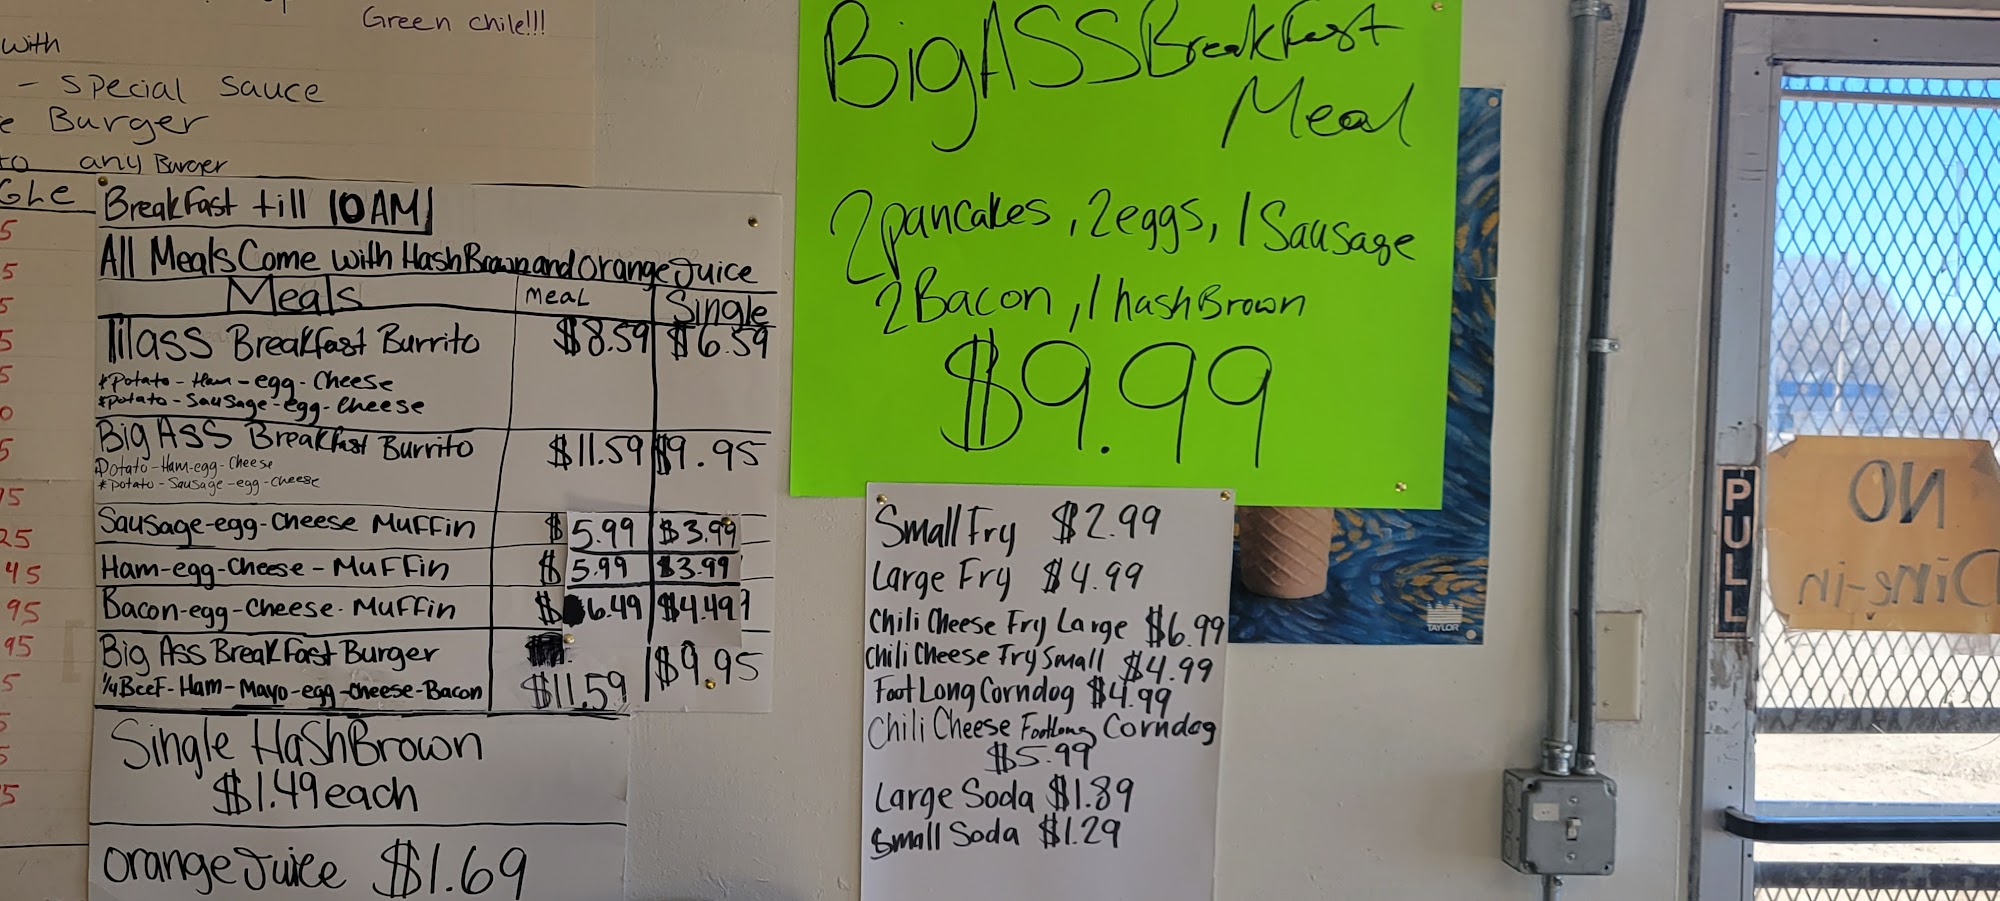 Green chile!!!
with
- Special Sauce
Burger
to any Burger
GLE
Breakfast till 10AM
All Meals Come with HashBrown and Orange Juice
Meals Meal Single
lilass Breakfast Burrito $8.59 $6.59
*Potato-Ham-egg-Cheese
*Potato-Sausage-egg-Cheese
Big Ass Breakfast Burrito $11.59 $9.95
Potato-Ham-egg-Cheese
*Potato-Sausage-egg-Cheese
Sausage-egg-Cheese Muffin $5.99 $3.99
Ham-egg-Cheese-Muffin $5.99 $3.99
Bacon-egg-Cheese-Muffin $6.49 $4.49
Big Ass Breakfast Burger $11.59 $9.95
1/4 Beef-Ham-Mayo-egg-Cheese-Bacon
Single HashBrown
$1.49 each
Orange Juice $1.69
Big ASS Breakfast
Meal
2 pancakes, 2 eggs, 1 Sausage
2 Bacon, 1 hashBrown
$9.99
Small Fry $2.99
Large Fry $4.99
Chili Cheese Fry Large $6.99
Chili Cheese Fry Small $4.99
Foot Long Corndog $4.99
Chili Cheese Footlong Corndog
$5.99
Large Soda $1.89
Small Soda $1.29
TAYLOR
PULL
NO
Dine-in